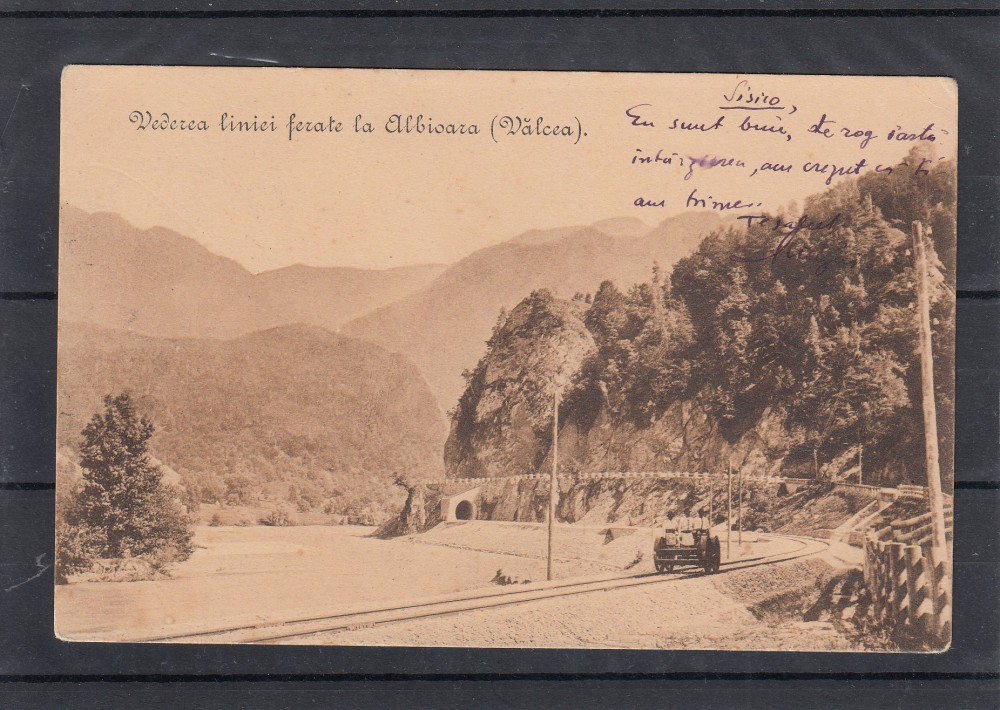 Vederea liniei ferate la Albioara (Vâlcea).
Sisico,
Eu sunt bine, te rog iartă
întârzierea, am crezut că ți
am trimes.